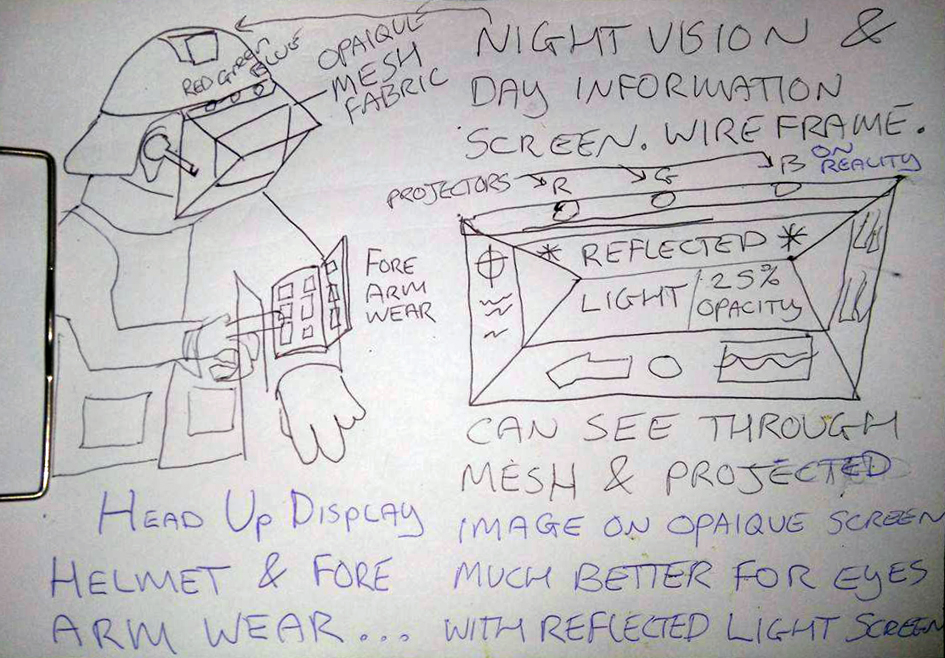 RED GREEN BLUE
OPAIQUE
MESH
FABRIC
NIGHT VISION &
DAY INFORMATION
SCREEN. WIRE FRAME.
ON
REALITY
PROJECTORS R G B
* REFLECTED *
LIGHT / 25%
OPACITY
FORE
ARM
WEAR
CAN SEE THROUGH
MESH & PROJECTED
IMAGE ON OPAIQUE SCREEN
MUCH BETTER FOR EYES
WITH REFLECTED LIGHT SCREEN
HEAD UP DISPLAY
HELMET & FORE
ARM WEAR...